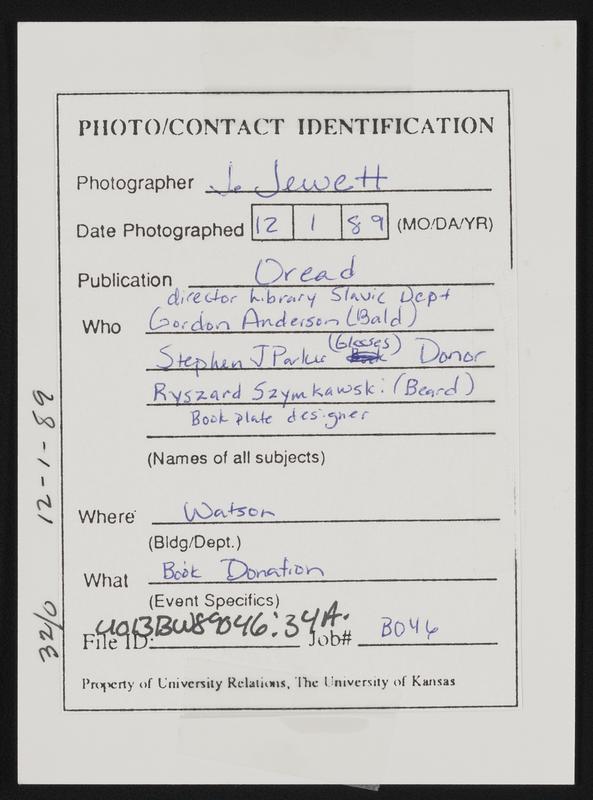 PHOTO/CONTACT IDENTIFICATION
Photographer J. Jewett
Date Photographed 12 1 89 (MO/DA/YR)
Publication Oread
director Library Slavic Dept
Who Gordon Anderson (Bald)
Stephen J Parker (Glasses) Donor
Ryszard Szymkawski (Beard)
Book plate designer
(Names of all subjects)
Where Watson
(Bldg/Dept.)
What Book Donation
(Event Specifics)
File ID: U013BW89046:34A. Job# B046
Property of University Relations, The University of Kansas
32/0 12-1-89